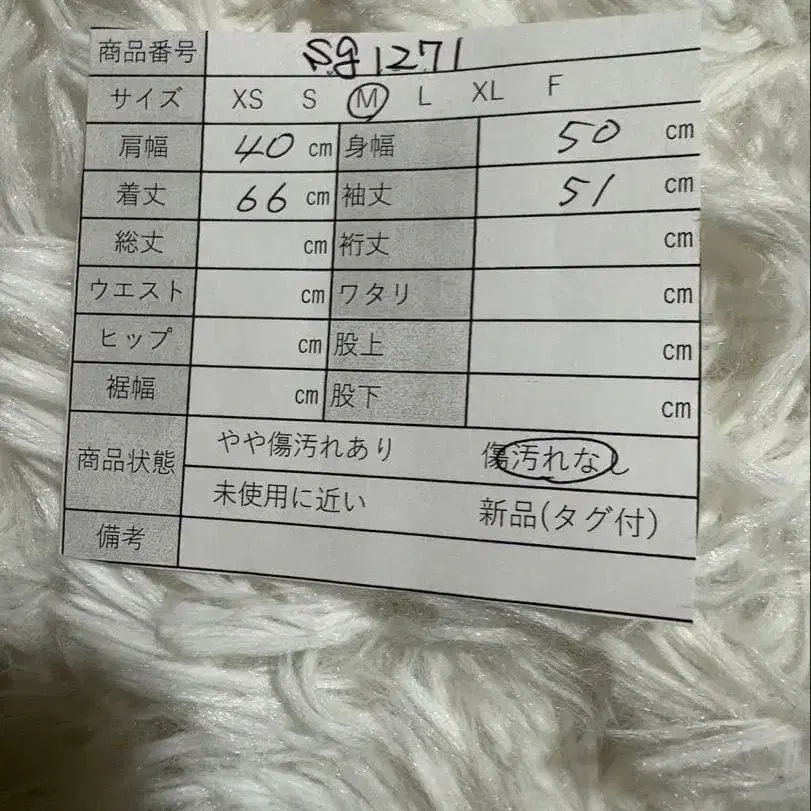 商品番号 sg1271
サイズ XS S M L XL F
肩幅 40 cm 身幅 50 cm
着丈 66 cm 袖丈 51 cm
総丈 cm 裄丈 cm
ウエスト cm ワタリ cm
ヒップ cm 股上 cm
裾幅 cm 股下 cm
商品状態 やや傷汚れあり 傷汚れなし
未使用に近い 新品(タグ付)
備考